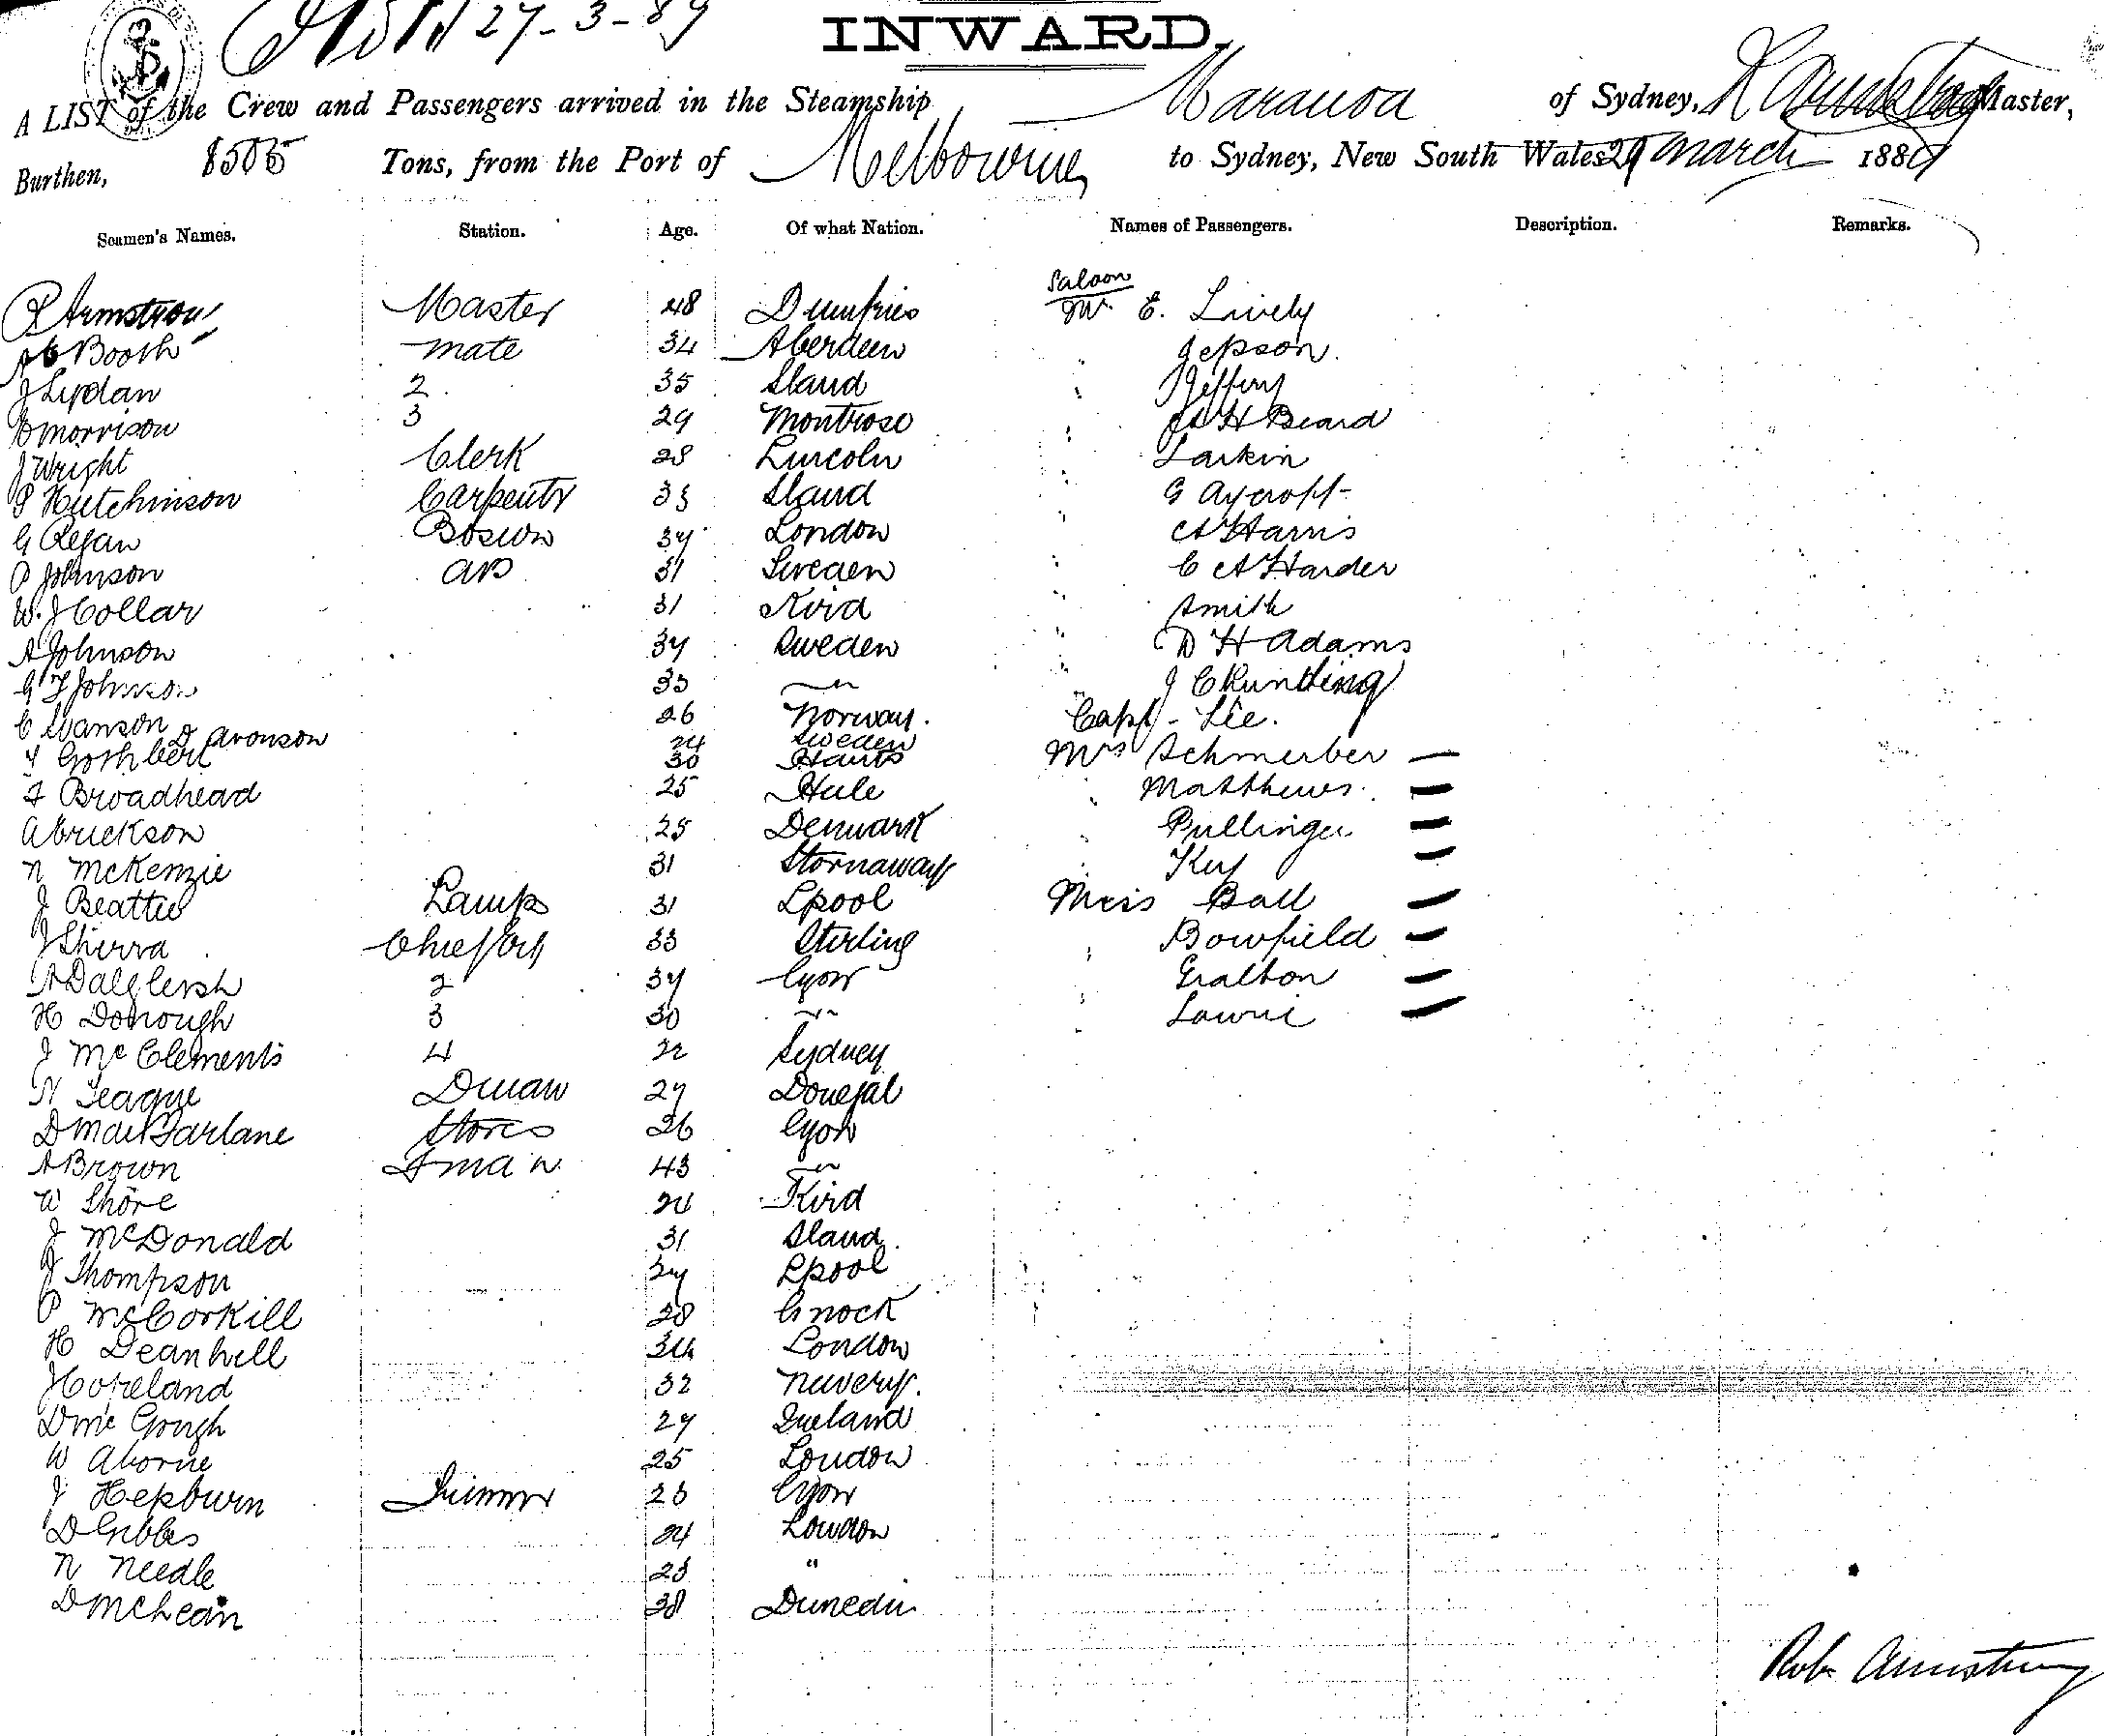 27-3-89
INWARD.
A LIST of the Crew and Passengers arrived in the Steamship Maranoa of Sydney, R Armstrong Master,
Burthen, 1505 Tons, from the Port of Melbourne to Sydney, New South Wales 29 March 1889
Seamen's Names. Station. Age. Of what Nation. Names of Passengers. Description. Remarks.
Saloon
R Armstrong Master 48 Dumfries Mr. E. Lively
Booth mate 34 Aberdeen Jepson.
J Lydan 2 35 Sland Jeffery
Morrison 3 29 Montrose H Beard
J Wright Clerk 28 Lincoln Larkin
Hutchinson Carpentr 33 Sland G Aycroft
G Regan Bosun 34 London A Harris
P Johnson AB 31 Sweden C A Harder
W. J Collar 31 Kird Smith
A Johnson 34 Sweden D H Adams
G F Johnson 33 J C Runtting
C Svanson 26 Norway. Capt - Lee.
D Aronson 24 Sweden
30 Hants Mrs Schmerber —
F Broadhead 25 Hull Matthews. —
A Erickson 25 Denmark Pullinger —
N McKenzie 31 Stornaway Key —
J Beattie Lamps 31 Lpool Miss Ball —
J Shirra Chief 33 Stirling Bowfield —
A Dalgleish 2 34 Gralton —
H Donough 3 30 Lawrie —
J McClements 4 22 Sydney
N Teague Dman 27 Donegal
D MacFarlane Stores 26
A Brown Fman 43
W Shore 24 Kird
J McDonald 31 Sland.
J Thompson 34 Lpool
P McCorkill 28 Gnock
H Deanhill 34 London
J Copeland 32
D Mc Gough 27 Ireland
W Ahorne 25 London
J Hepburn Trimmr 26
D Gibbs 24 London
N Needle 23 "
D McLean 38 Dunedin
Robt Armstrong